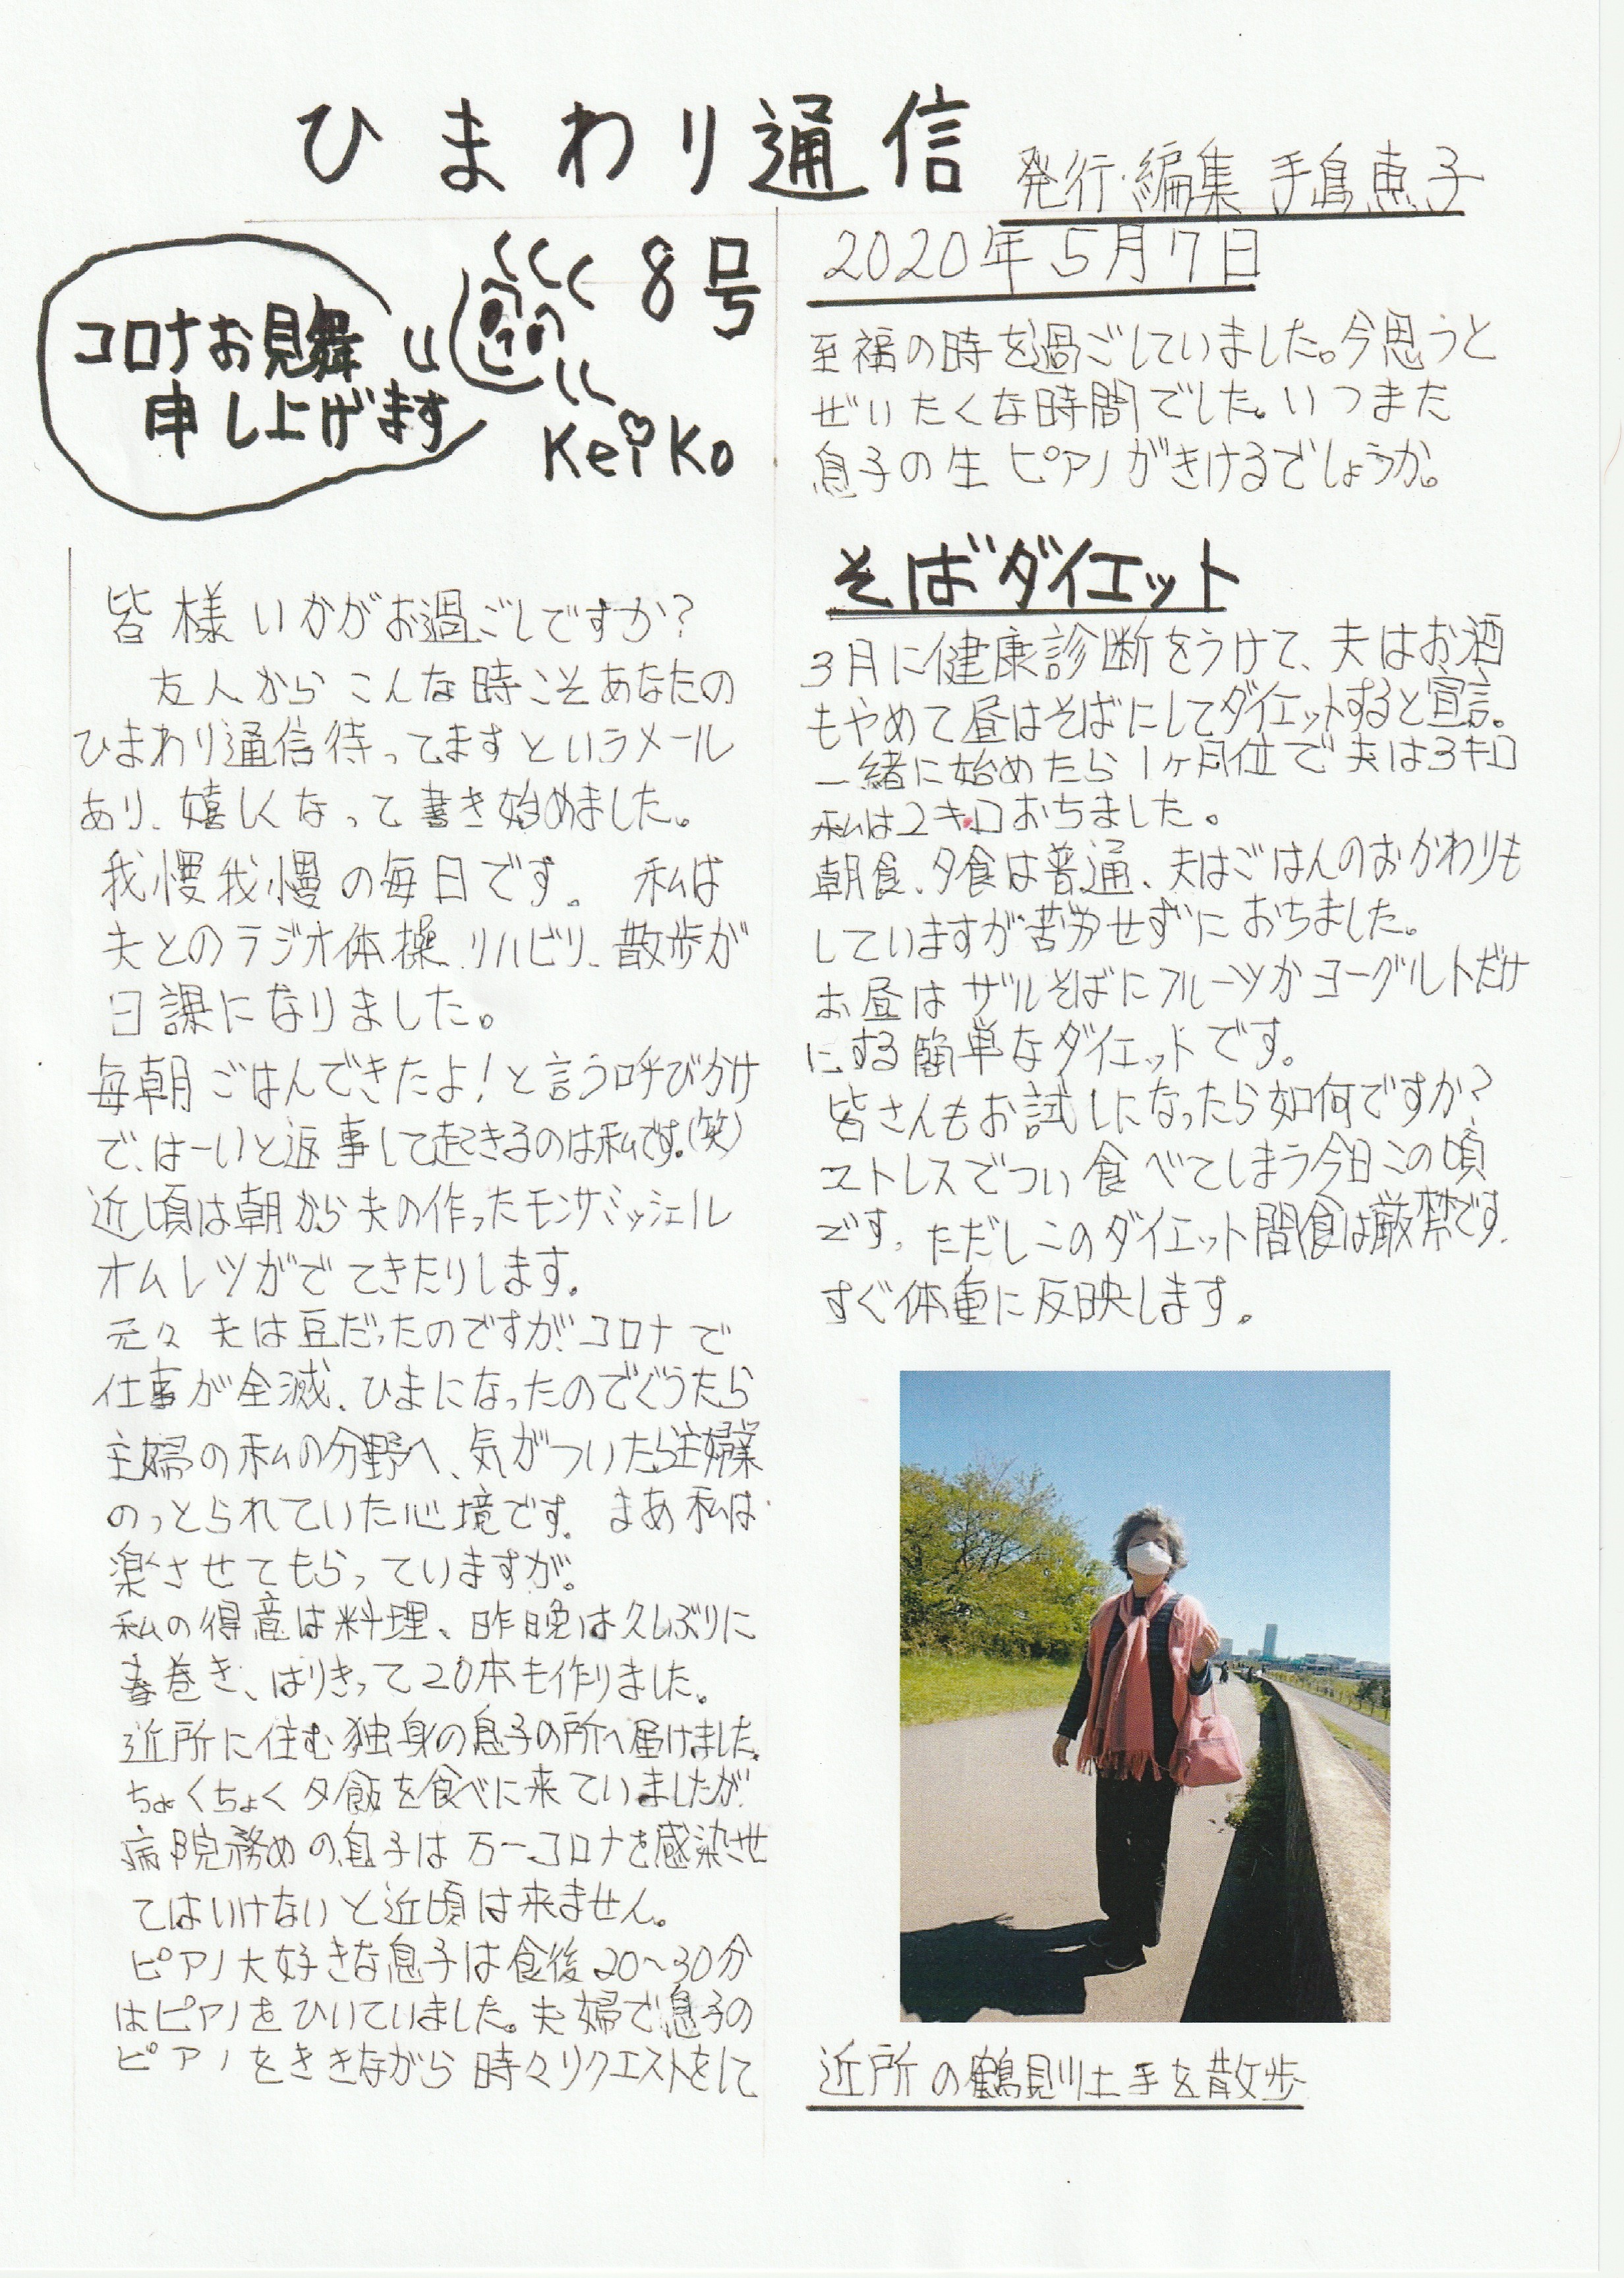 ひまわり通信
発行・編集 手島恵子
8号
2020年5月7日
コロナお見舞い
申し上げます
Keiko
皆様いかがお過ごしですか?
友人から こんな時こそあなたの
ひまわり通信待ってますというメール
あり、嬉しくなって書き始めました。
我慢我慢の毎日です。 私は
夫とのラジオ体操、リハビリ、散歩が
日課になりました。
毎朝ごはんできたよ!と言う呼びかけ
で、はーいと返事して起きるのは私です。(笑)
近頃は朝から夫の作ったモンサミッシェル
オムレツがでてきたりします。
元々夫は豆だったのですが、コロナで
仕事が全滅、ひまになったのでぐうたら
主婦の私の分野へ、気がついたら主婦業
のっとられていた心境です。まあ私は
楽させてもらっていますが。
私の得意は料理、昨晩は久しぶりに
春巻き、はりきって20本も作りました。
近所に住む独身の息子の所へ届けました。
ちょくちょく夕飯を食べに来ていましたが
病院務めの息子は万一コロナを感染せ
てはいけないと近頃は来ません。
ピアノ大好きな息子は食後20~30分
はピアノをひいていました。夫婦で息子の
ピアノをききながら時々リクエストをして
至福の時を過ごしていました。今思うと
ぜいたくな時間でした。いつまた
息子の生ピアノがきけるでしょうか。
そばダイエット
3月に健康診断をうけて、夫はお酒
もやめて昼はそばにしてダイエットすると宣言。
一緒に始めたら1ヶ月位で夫は3キロ
私は2キロおちました。
朝食、夕食は普通、夫はごはんのおかわりも
していますが苦労せずにおちました。
お昼はザルそばにフルーツかヨーグルトだけ
にする簡単なダイエットです。
皆さんもお試しになったら如何ですか?
ストレスでつい食べてしまう今日この頃
です。ただしこのダイエット間食は厳禁です。
すぐ体重に反映します。
近所の鶴見川土手を散歩